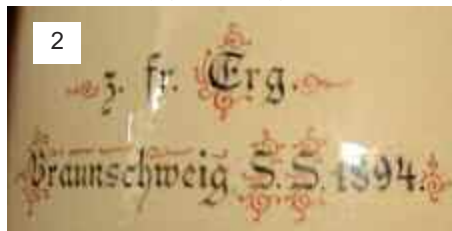 2
z. fr. Erg.
Braunschweig S. S. 1894.